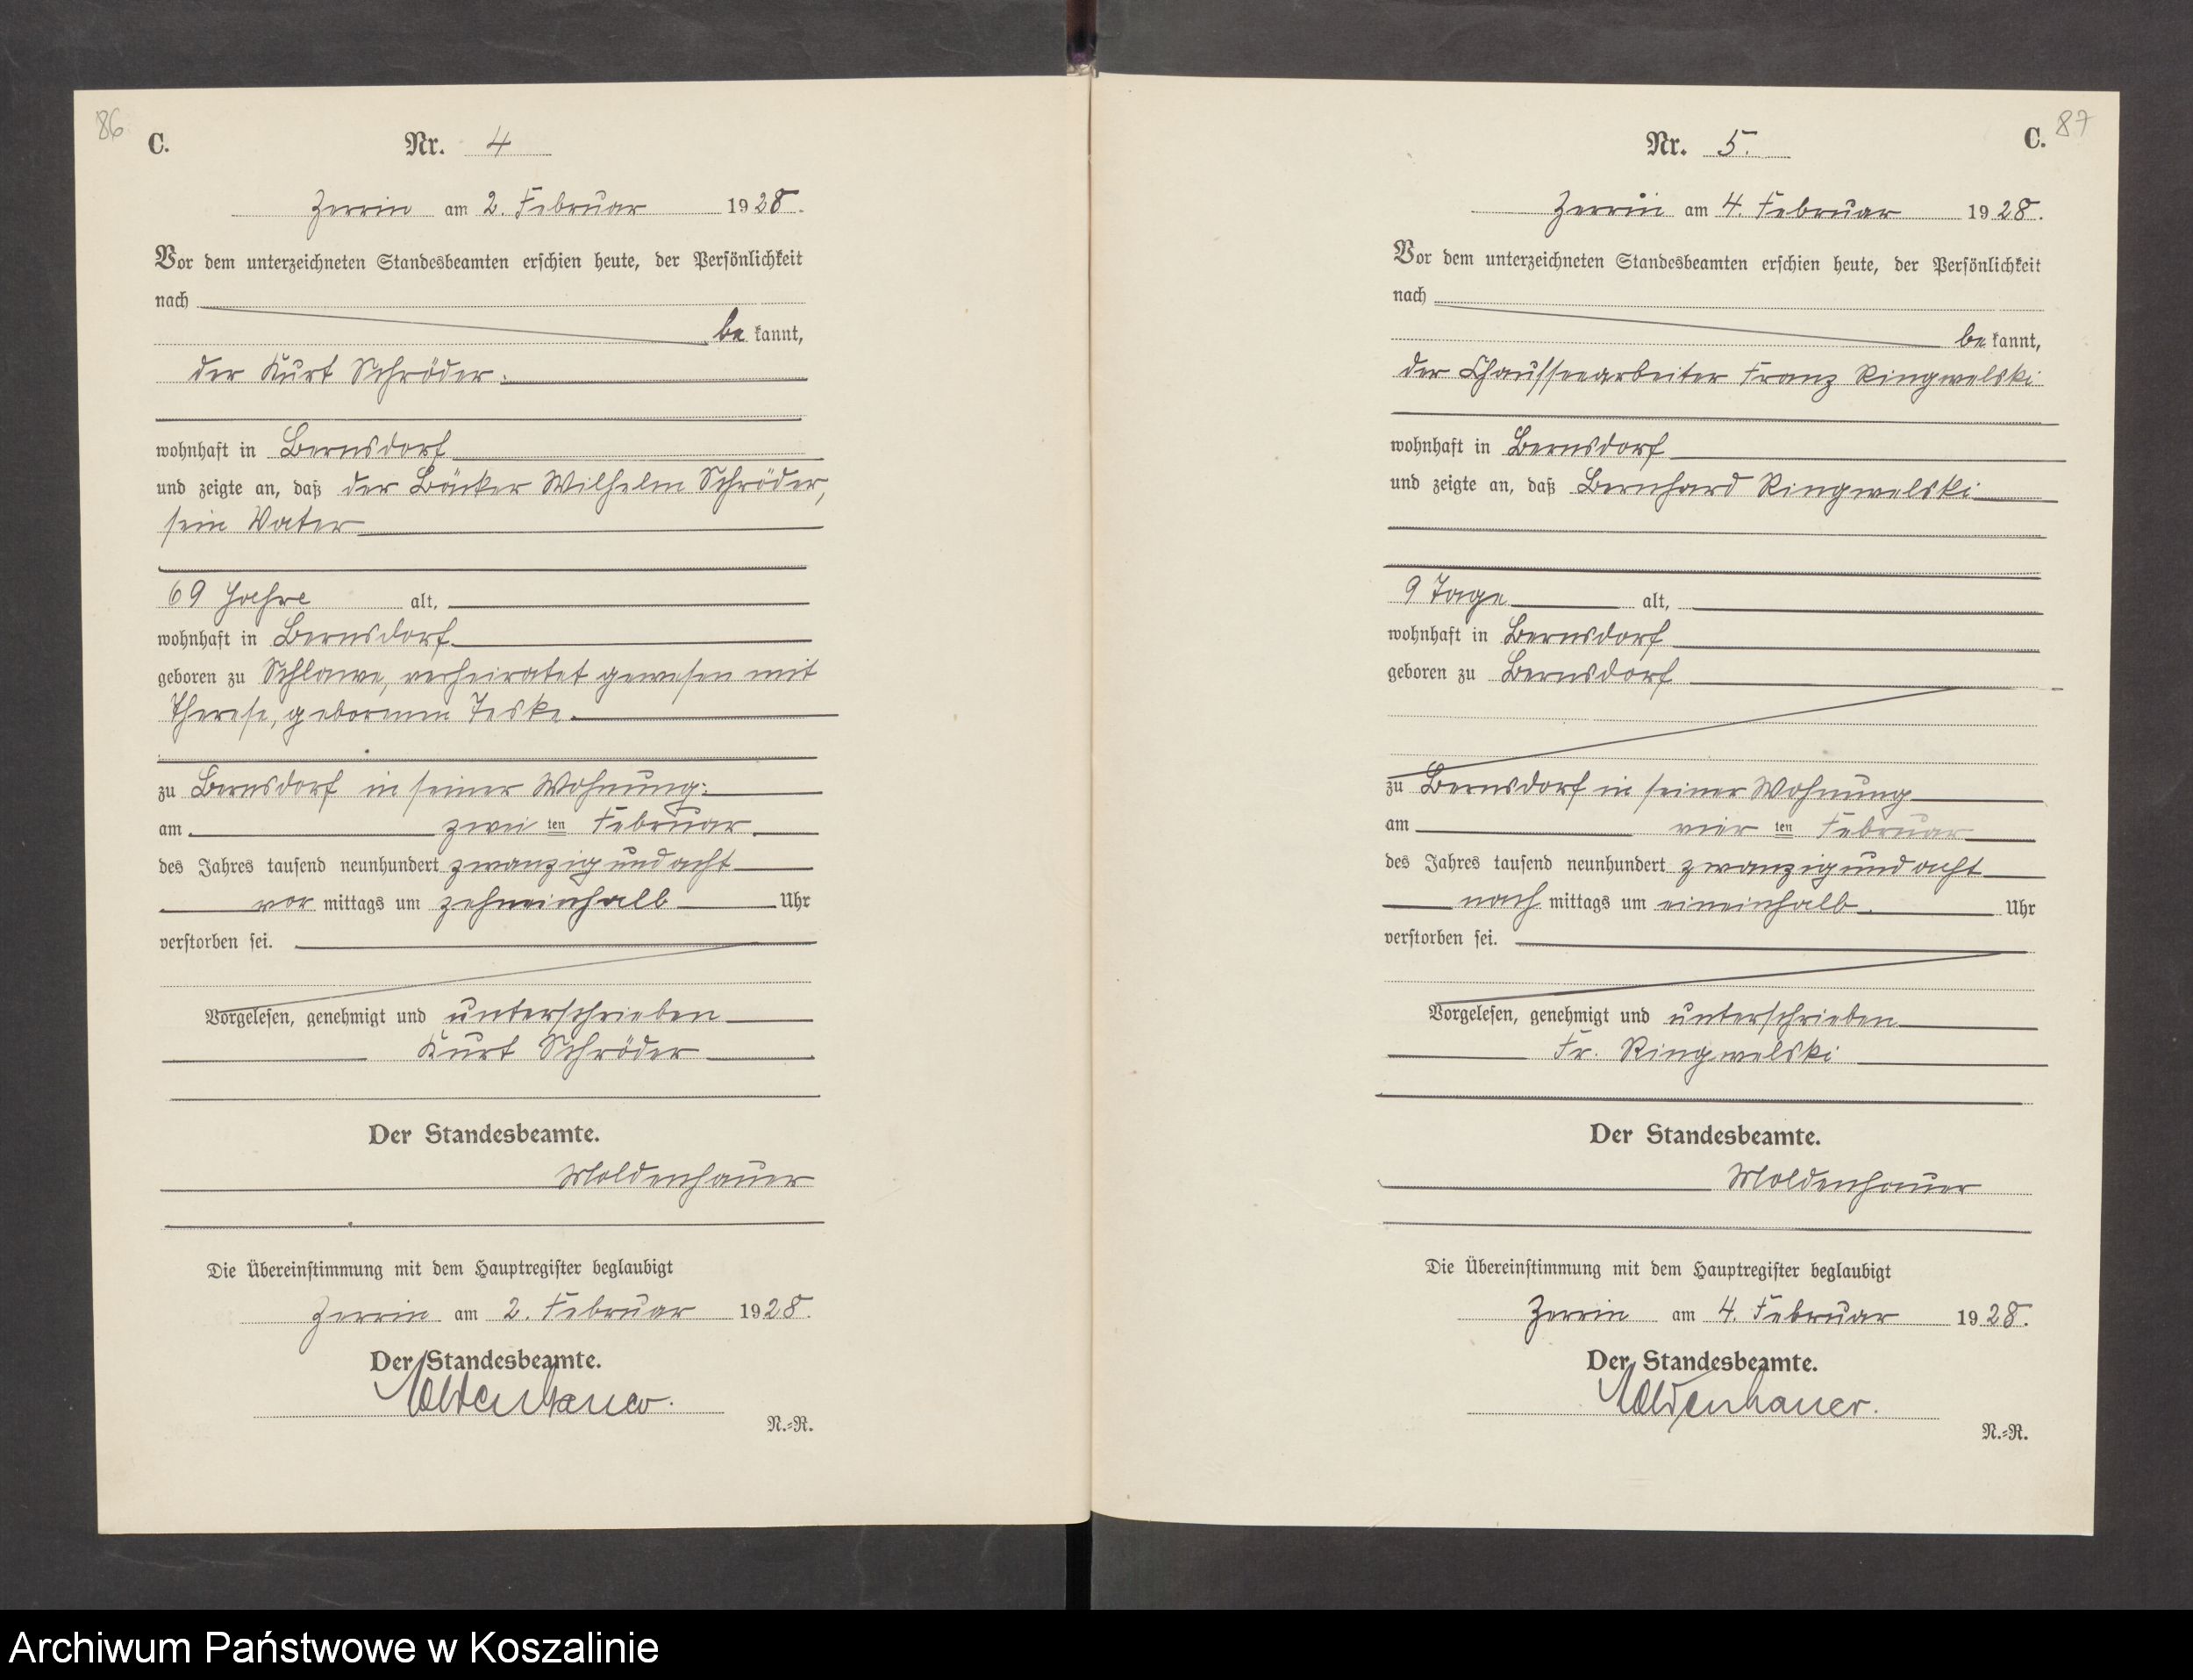 86
C.
Nr. 4
Zerrin am 2. Februar 1928.
Vor dem unterzeichneten Standesbeamten erschien heute, der Persönlichkeit
nach
be kannt,
der Kurt Schröder.
wohnhaft in Bernsdorf
und zeigte an, daß der Bäcker Wilhelm Schröder,
sein Vater
69 Jahre alt,
wohnhaft in Bernsdorf
geboren zu Schlawe, verheiratet gewesen mit
Therese, geborenen Teske.
zu Bernsdorf in seiner Wohnung
am zwei ten Februar
des Jahres tausend neunhundert zwanzig und acht
vor mittags um zehneinhalb Uhr
verstorben sei.
Vorgelesen, genehmigt und unterschrieben
Kurt Schröder
Der Standesbeamte.
Moldenhauer
Die Übereinstimmung mit dem Hauptregister beglaubigt
Zerrin am 2. Februar 1928.
Der Standesbeamte.
Moldenhauer.
N.=R.
87
C.
Nr. 5.
Zerrin am 4. Februar 1928.
Vor dem unterzeichneten Standesbeamten erschien heute, der Persönlichkeit
nach
be kannt,
der Chausseearbeiter Franz Ringwelski
wohnhaft in Bernsdorf
und zeigte an, daß Bernhard Ringwelski
9 Tage alt,
wohnhaft in Bernsdorf
geboren zu Bernsdorf
zu Bernsdorf in seiner Wohnung
am vier ten Februar
des Jahres tausend neunhundert zwanzig und acht
nach mittags um eineinhalb Uhr
verstorben sei.
Vorgelesen, genehmigt und unterschrieben
Fr. Ringwelski
Der Standesbeamte.
Moldenhauer
Die Übereinstimmung mit dem Hauptregister beglaubigt
Zerrin am 4. Februar 1928.
Der Standesbeamte.
Moldenhauer.
N.=R.
Archiwum Państwowe w Koszalinie